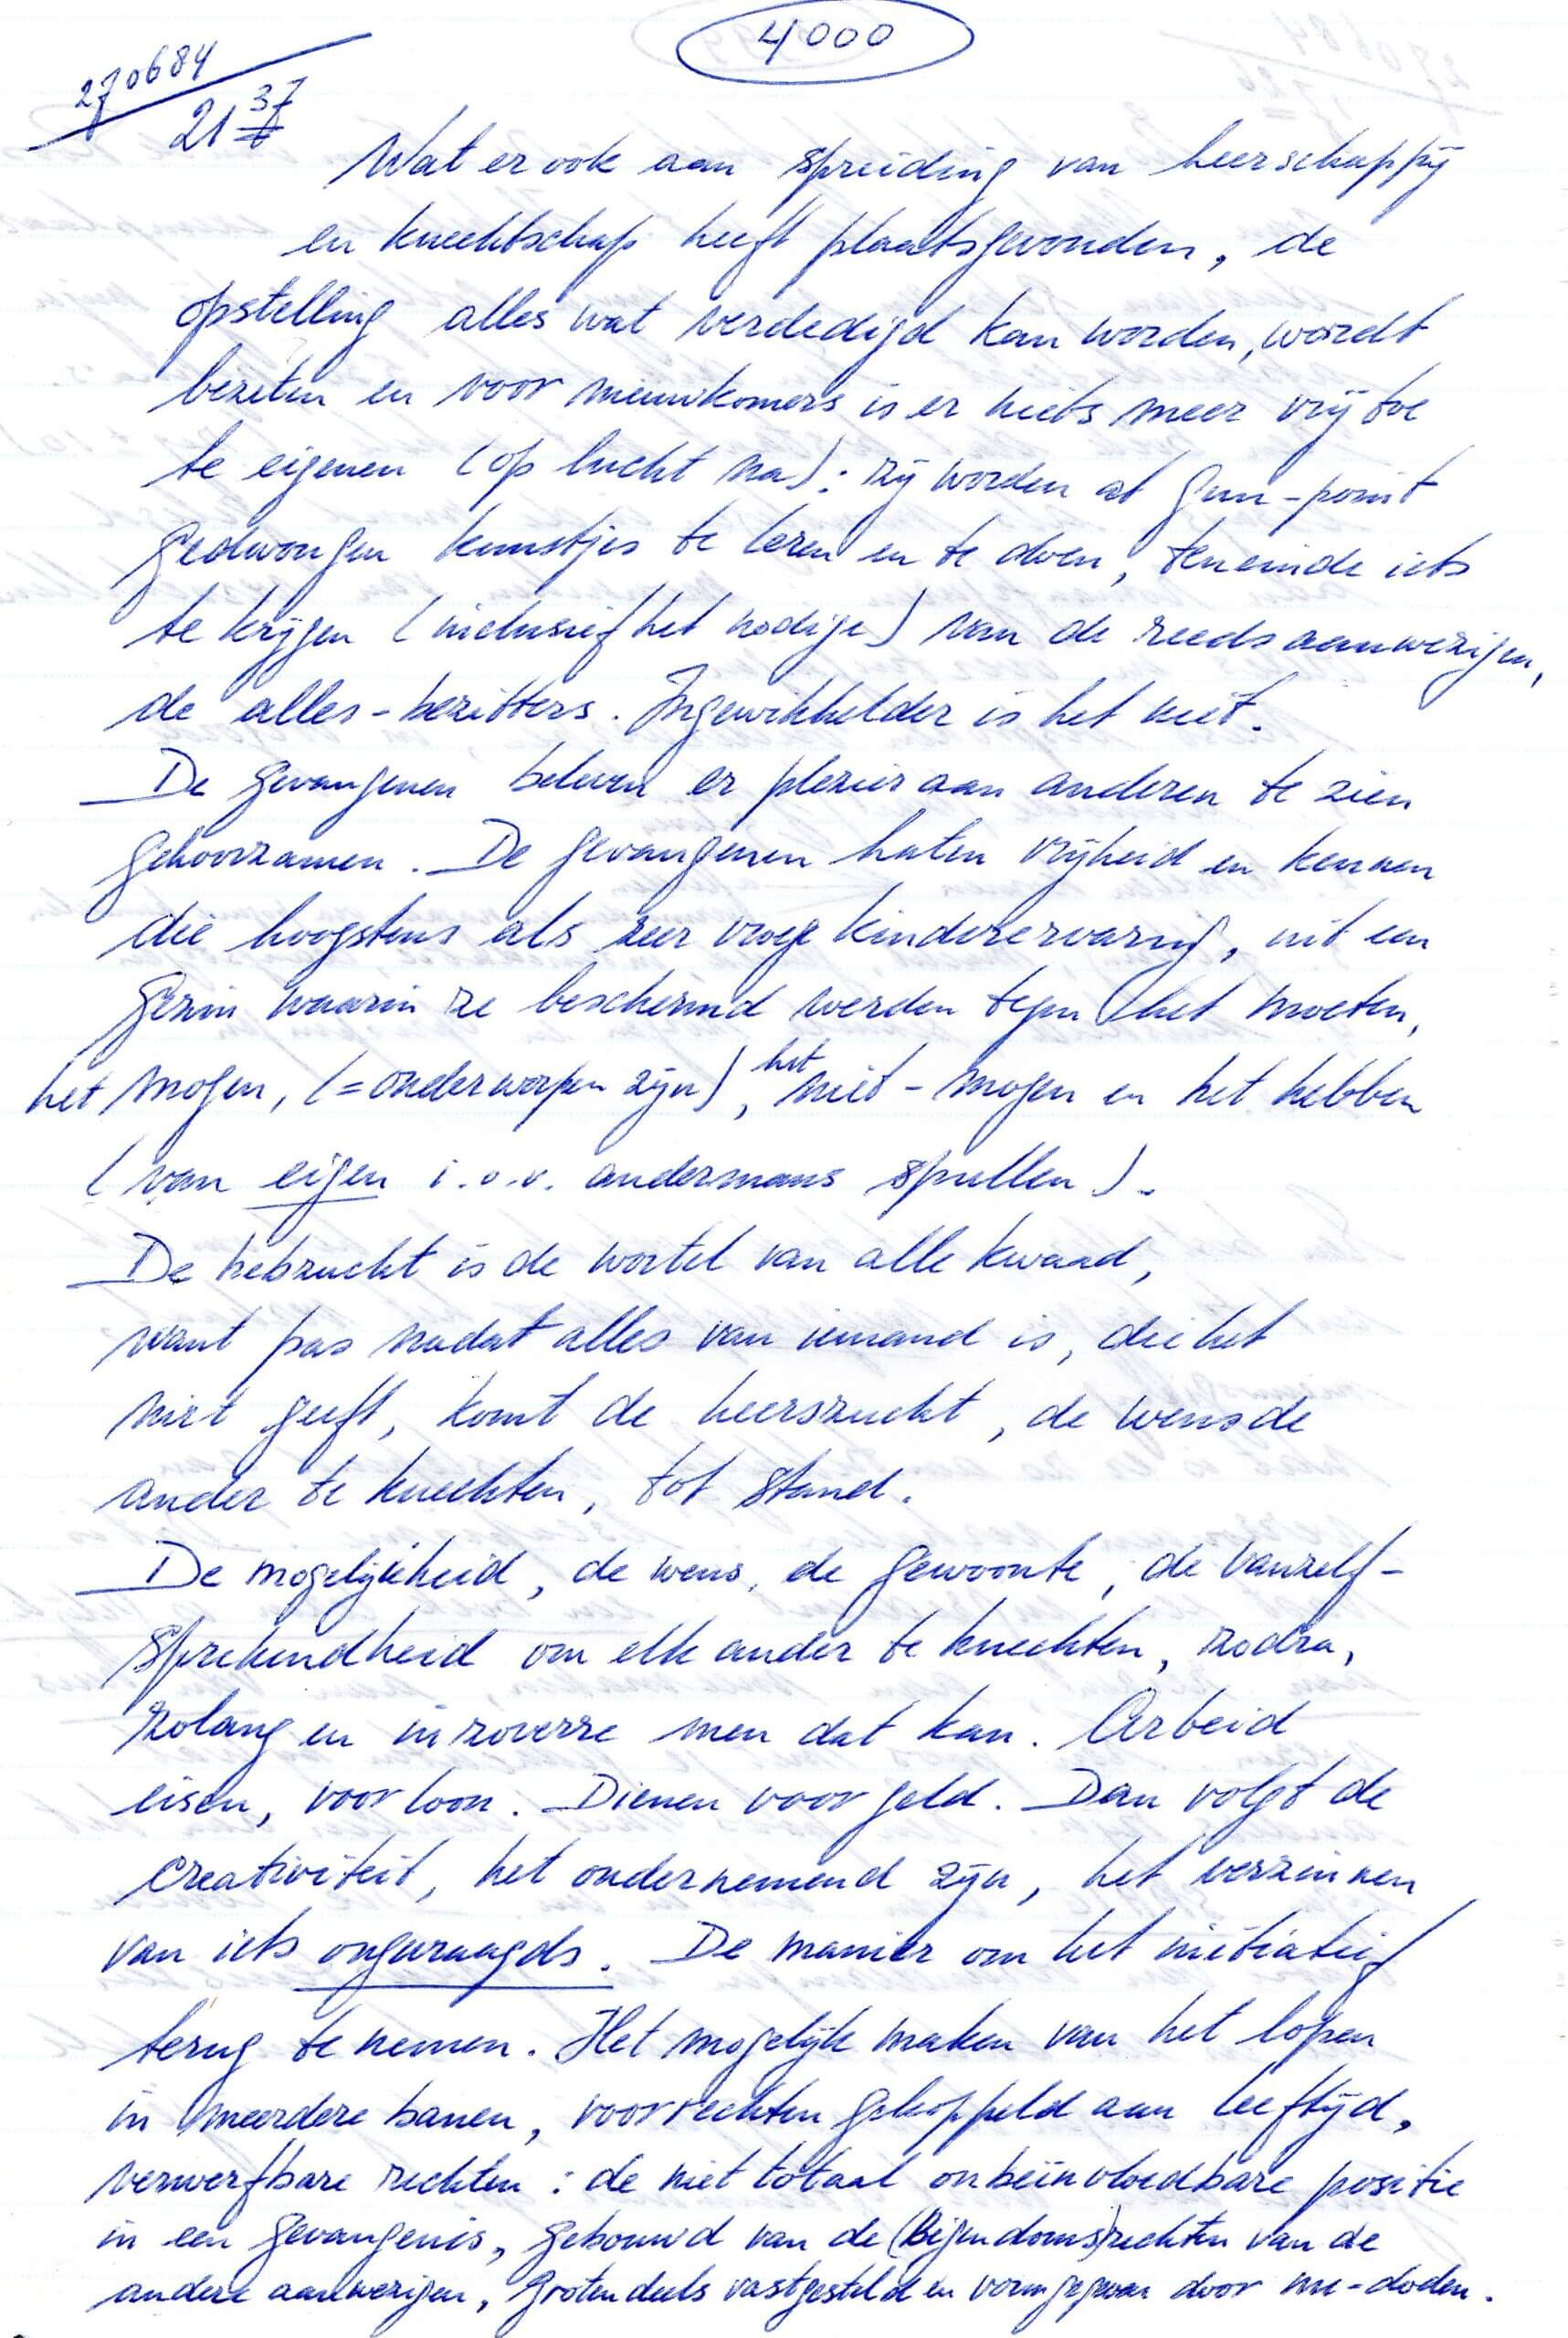 4000
270684
21 37
Wat er ook aan spreiding van heerschappij
en knechtschap heeft plaatsgevonden, de
opstelling alles wat verdedigd kan worden, wordt
bezeten en voor nieuwkomers is er niets meer vrij toe
te eigenen (op lucht na): zij worden at gun-point
gedwongen kunstjes te leren en te doen, teneinde iets
te krijgen (inclusief het nodige) van de reeds aanwezigen,
de alles-bezitters. Ingewikkelder is het niet.
De gevangenen beleven er plezier aan anderen te zien
gehoorzamen. De gevangenen haten vrijheid en kennen
die hoogstens als zeer vroege kinderervaring, uit een
gezin waarin ze beschermd werden tegen het moeten,
het mogen, (=onderworpen zijn), het niet-mogen en het hebben
(van eigen i.o.v. andermans spullen).
De hebzucht is de wortel van alle kwaad,
want pas nadat alles van iemand is, die het
niet geeft, komt de heerszucht, de wens de
ander te knechten, tot stand.
De mogelijkheid, de wens, de gewoonte, de vanzelf-
sprekendheid om elkander te knechten, zodra,
zolang en in zoverre men dat kan. Arbeid
eisen, voor loon. Dienen voor geld. Dan volgt de
creativiteit, het ondernemend zijn, het verzinnen
van iets ongevraagds. De manier om het initiatief
terug te nemen. Het mogelijk maken van het lopen
in meerdere banen, voorrechten gekoppeld aan leeftijd,
verwerfbare rechten: de niet totaal onbeïnvloedbare positie
in een gevangenis, gebouwd van de (eigendoms)rechten van de
andere aanwezigen, grotendeels vastgesteld en vormgegeven door nu-doden.